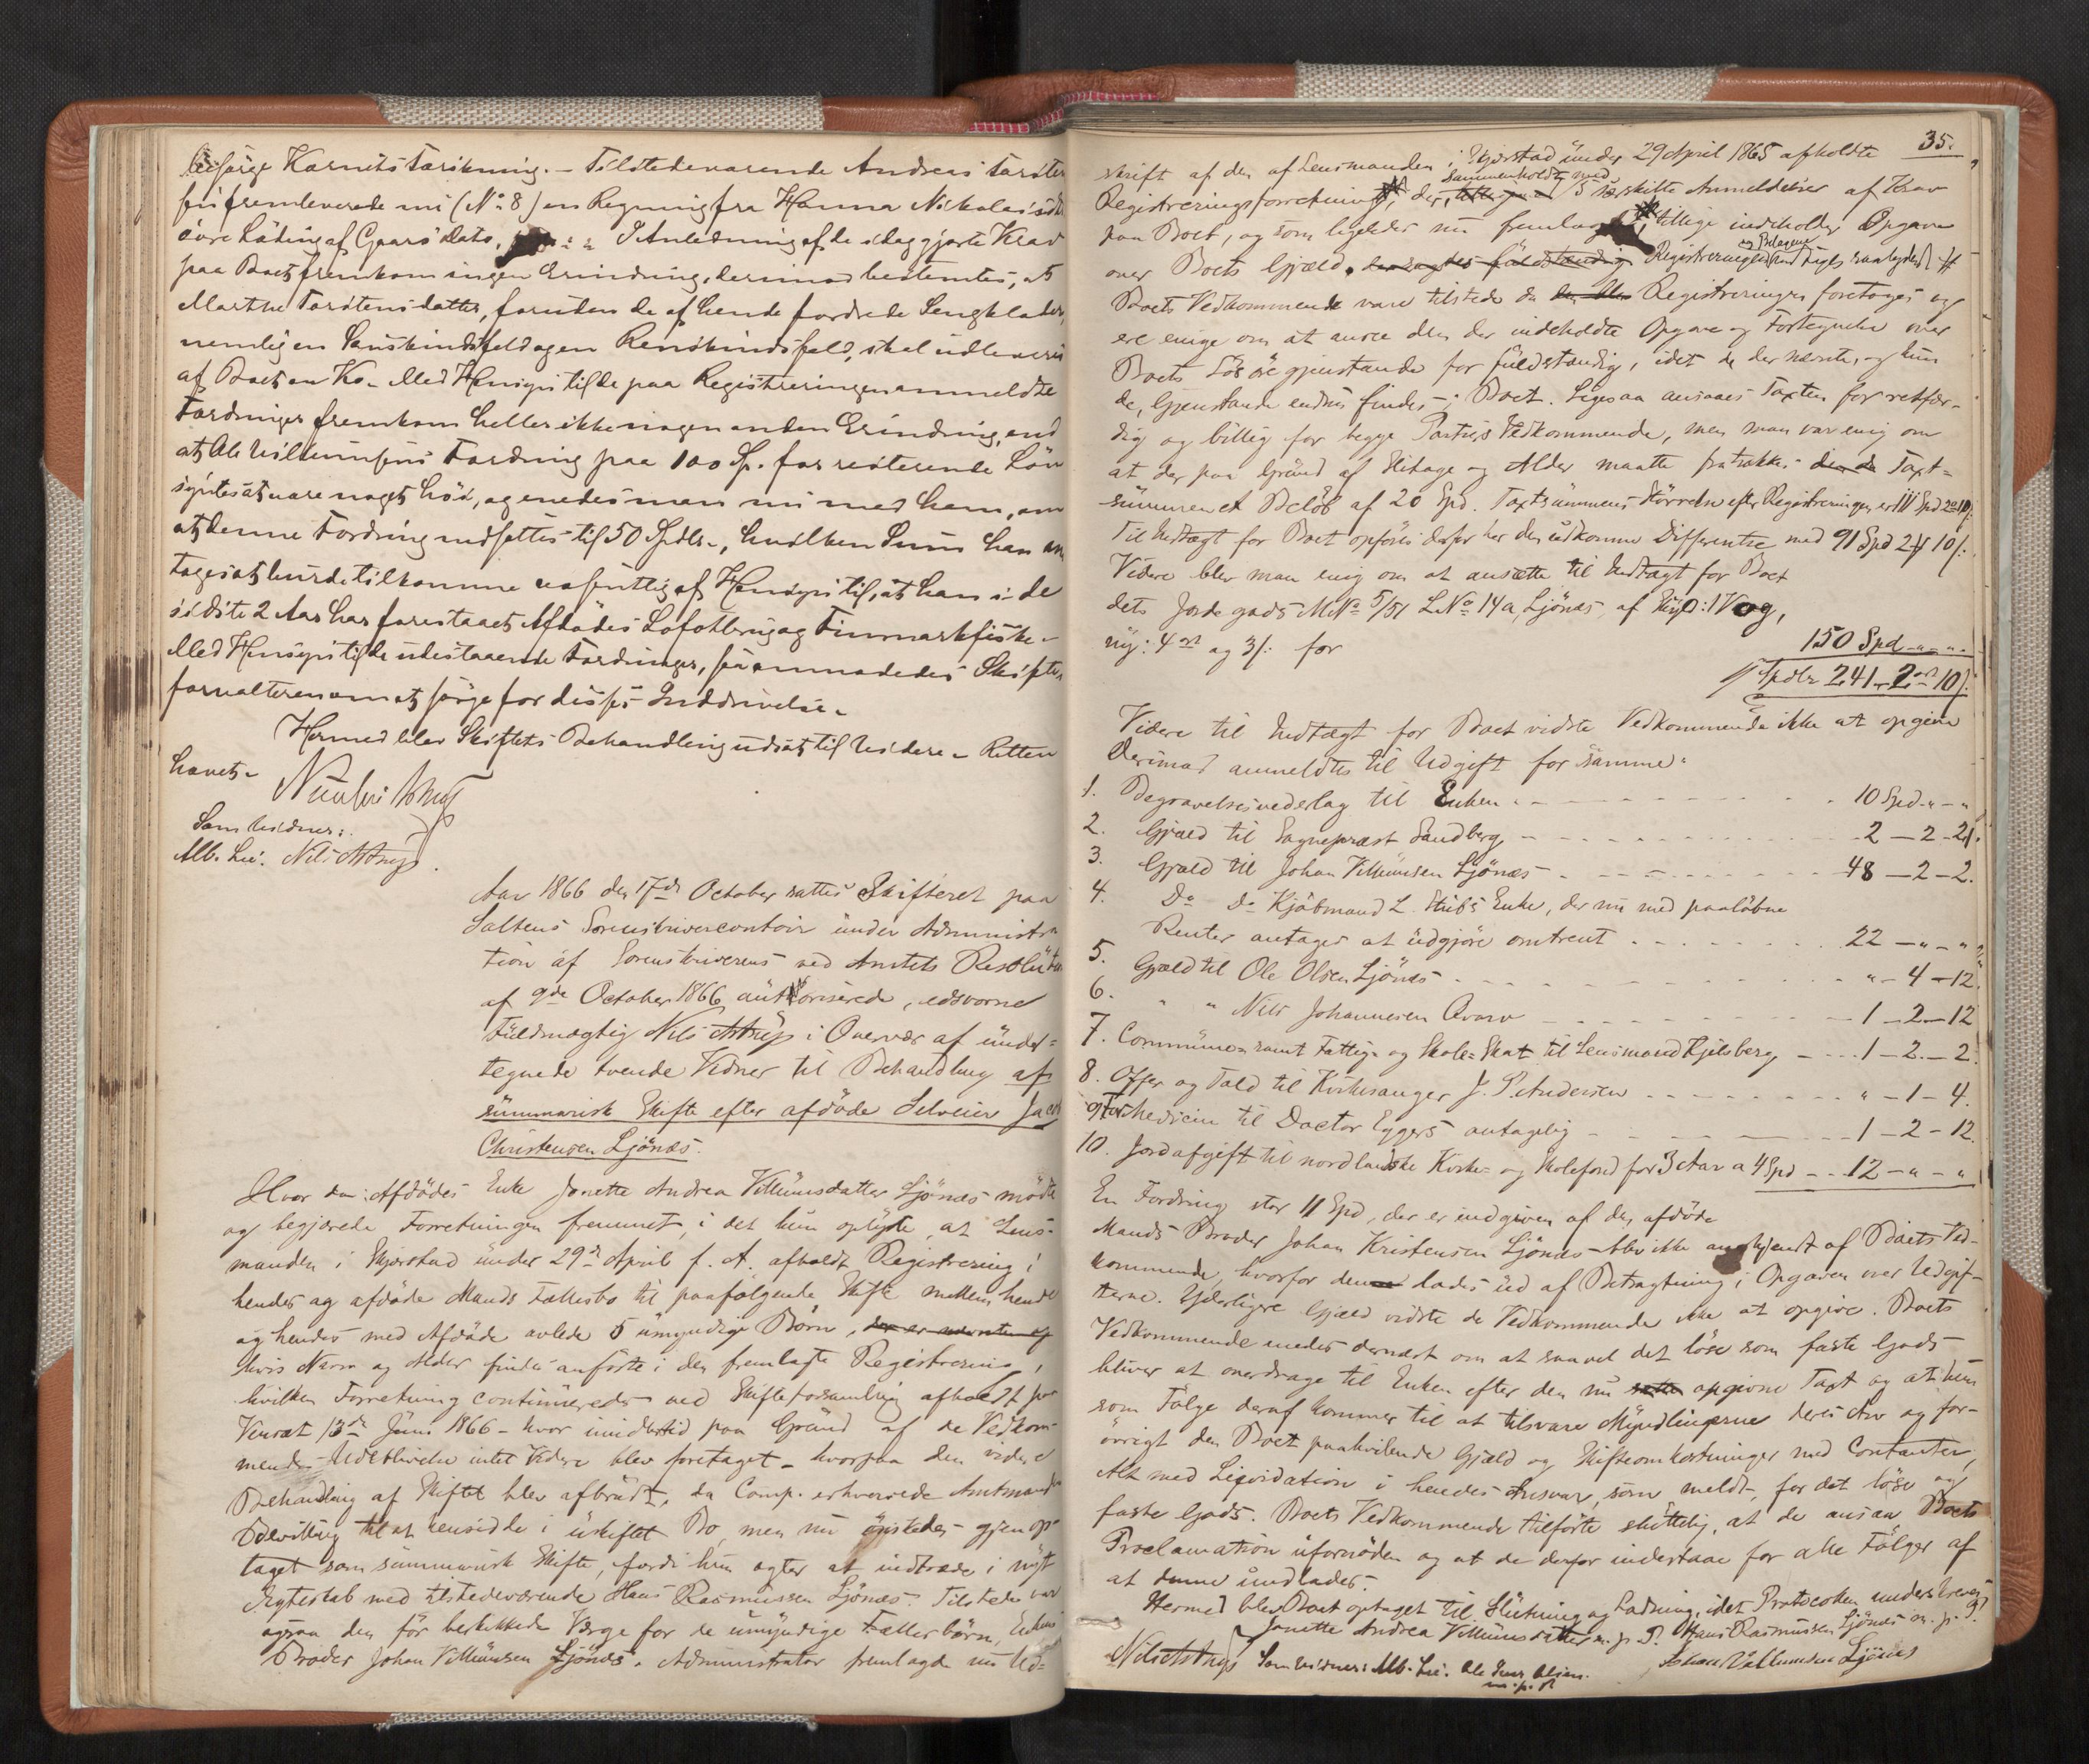 Karnils Tarstensøn. – Tilstedeværende Andreas Tarsten-
sen fremleverede nu (No 8) en Regning fra Hanna Nickolaisdtr
øvre Løding af Gaars Dato, I Anledning af de idag gjorte Krav
paa Boet fremkom ingen Erindring, derimod bestemtes, at
Marthe Tarstensdatter, foruden de af hende fordrede Sengklæder,
nemlig en Sauskindsfeld og en Renskindsfeld, skal udleveres
af Boet en Ko. Med Hensyn til de paa Registreringen anmeldte
Fordringer fremkom heller ikke nogen anden Erindring, end
at Ole Villumsens Fordring paa 100 Sp. for resterende Løn
syntes at være noget høi, og enedes man nu med ham, om
at denne Fordring nedsættes til 50 Spdlr, hvilken Sum han an-
tages at burde tilkomme navnlig af Hensyn til, at han i de
sidste 2 Aar har forestaaet Afdødes Lofotbrug og Finmarkfiske.
Med Hensyn til de udestaaende Fordringer, saa anmodedes Skifte-
forvalteren om at sørge for disses Inddrivelse.
Hermed blev Skiftets Behandling udsat til Videre – Retten
hævet.
Som Vidner:
Alb. Lie. Nils Astrup.
Aar 1866 den 17de October sattes Skifteret paa
Saltens Sorenskrivercontoir under Administra
tion af Sorenskriverens ved Amtets Resolution
af 9de October 1866 authoriserede, edsvorne
Fuldmægtig Nils Astrup i Overvær af under=
tegnede tvende Vidner til Behandling af
summarisk Skifte efter afdøde Selveier Jacob
Christensen Ljønæs.
Hvor da: Afdødes Enke Jonette Andrea Villumsdatter Ljønæs mødte
og begjærede Forretningen fremmet, i det hun oplyste, at Lens-
manden i Skjerstad under 29de April f. A. afholdt Registrering i
hendes og afdøde Mands Fællesbo til paafølgende Skifte mellem hende
og hendes med Afdøde avlede 5 umyndige Børn,
hvis Navn og Alder findes anførte i den fremlagte Registrering,
hvilken Forretning continueredes ved Skifteforsamling afholdt paa
13de Juni 1866 – hvor imidlertid paa Grund af de Vedkom-
mendes Udeblivelse intet Videre blev foretaget – hvorpaa den videre
Behandling af Skiftet blev afbrudt, da Comp. erhvervede Amtmandens
Bevilling til at hensidde i uskiftet Bo, men nu ønskedes gjenop-
taget som summarisk Skifte, fordi hun agter at indtræde i nyt
Ægteskab med tilstedeværende Hans Rasmussen Ljønæs. Tilstede var
ogsaa den før beskikkede Værge for de umyndige Fællesbørn, Enkens
Broder Johan Villumsen Ljønæs. Administrator fremlagde nu Ud=
35.
skrift af den af Lensmanden i Skjerstad under 29 April 1865 afholdte
Registreringsforretning, der, sammenholdt med 5 særskilte Anmeldelser af Krav
paa Boet, og som ligeledes nu fremlagdes, tillige indeholder Opgave
over Boets Gjæld. Registreringen og Bilagene
Boets Vedkommende vare tilstede da Registreringen foretoges og
ere enige om at ansee den der indeholdte Opgave og Fortegnelse over
Boets Løsøregjenstande for fuldstændig, idet de der nævnte, og kun
de, Gjenstande endnu findes i Boet. Ligesaa ansaaes Taxten for retfær-
dig og billig for begge Partiers Vedkommende, men man var enig om
at der paa Grund af Slitage og Alder maatte fratrækkes Taxt=
summen et Beløb af 20 Spd. Taxtsummens Størrelse efter Registreringen er 111 Spd 2 ort 10 s.
Til Indtægt for Boet opføres derfor her den udkomne Differentse med 91 Spd 2 ort 10 s.
Videre blev man enig om at ansætte til Indtægt for Boet
dets Jordegods M No 5/51 L No 14a, Ljønæs, af Skyld: 1 Vog,
ny: 4 ort og 3 s. for
150 Spd - " - "
Spdlr 241 - 2 ort 10 s.
Videre til Indtægt for Boet vidste Vedkommende ikke at opgive
Derimod anmeldtes til Udgift for samme:
1. Begravelsesvederlag til Enken - - - 10 Spd - " - "
2. Gjæld til Sognepræst Sandberg - - - 2 - 2 - 21.
3. Gjæld til Johan Villumsen Ljønæs - - - 48 - 2 - 2.
4. Do Do Kjøbmand L. Enke, der nu med paaløbne
Renter antages at udgjøre omtrent - - - 22 - " - "
5. Gjæld til Ole Olsen Ljønæs - - - " - 4 - 12.
6. " " Nils Johannesen - - - 1 - 2 - 12
7. Commune- samt Fattig- og Skole-Skat til Lensmand Kjelsberg - - - 1 - 2 - 2.
8. Offer og Told til Kirkesanger J. P. Andersen - - - " - 1 - 4.
9. For Medicin til Doctor Eggers antagelig - - - 1 - 2 - 12.
10. Jordafgift til nordlandske Kirke- og Skolefond for 3 Aar a 4 Spd - - 12 - " - "
En Fordring stor 11 Spd, der er indgiven af den afdøde
Mands Broder Johan Kristensen Ljønæs blev ikke anerkjendt af Boets Ved-
kommende, hvorfor den lades ud af Betragtning i Opgaven over Udgif-
terne. Yderligere Gjæld vidste de Vedkommende ikke at opgive. Boets
Vedkommende enedes dernæst om at saavel det løse som faste Gods
bliver at overdrage til Enken efter den nu opgivne Taxt og at hun
som Følge deraf kommer til at tilsvare Myndlingerne deres Arv og for-
øvrigt den Boet paahvilende Gjæld og Skifteomkostninger med Contanter,
Alt med Liqvidation i hendes Ansvar, som meldt, for det løse og
faste Gods. Boets Vedkommende tilførte sluttelig, at de ansaa Boets
Proclamation ufornøden og at de derfor indestaae for alle Følger af
at denne undlades.
Hermed blev Boet optaget til Slutning og Lodning, idet Protocollen underskreves
Jonette Andrea Villumsdatter m. p. P. Hans Rasmussen Ljønæs m. p. P.
Nils Astrup Som Vidner: Alb. Lie. Ole Olsen. Johan Villumsen Ljønes
m. p. P.